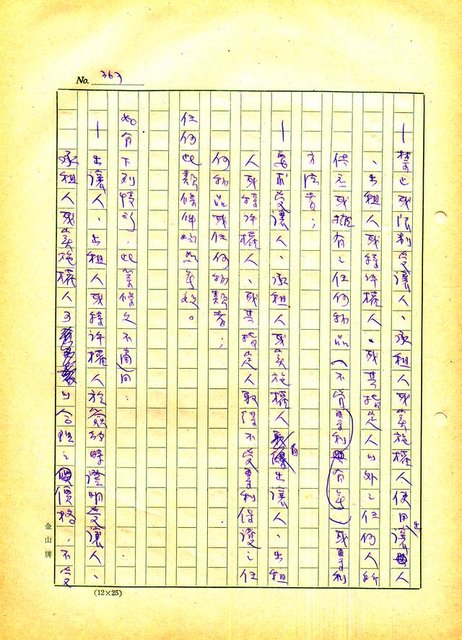 No. 363
—禁止或限制受讓人、承租人或實施權人使用出讓人
、出租人或特許權人。或其指定人以外之任何人所
供應或擁有之任何物品(不管專利有無)或專利
方法者;
—要求受讓人、承租人或實施權人自出讓人、出租
人或特許權人、或其指定人取得不受專利保護之任
何物品或任何物類者;
任何此類條件均應無效。
如有下列情形,此等條文不適用:
—出讓人、出租人或特許權人於簽約時證明受讓人、
承租人或實施權人可以合理之價格,不受
金山牌
(12×25)